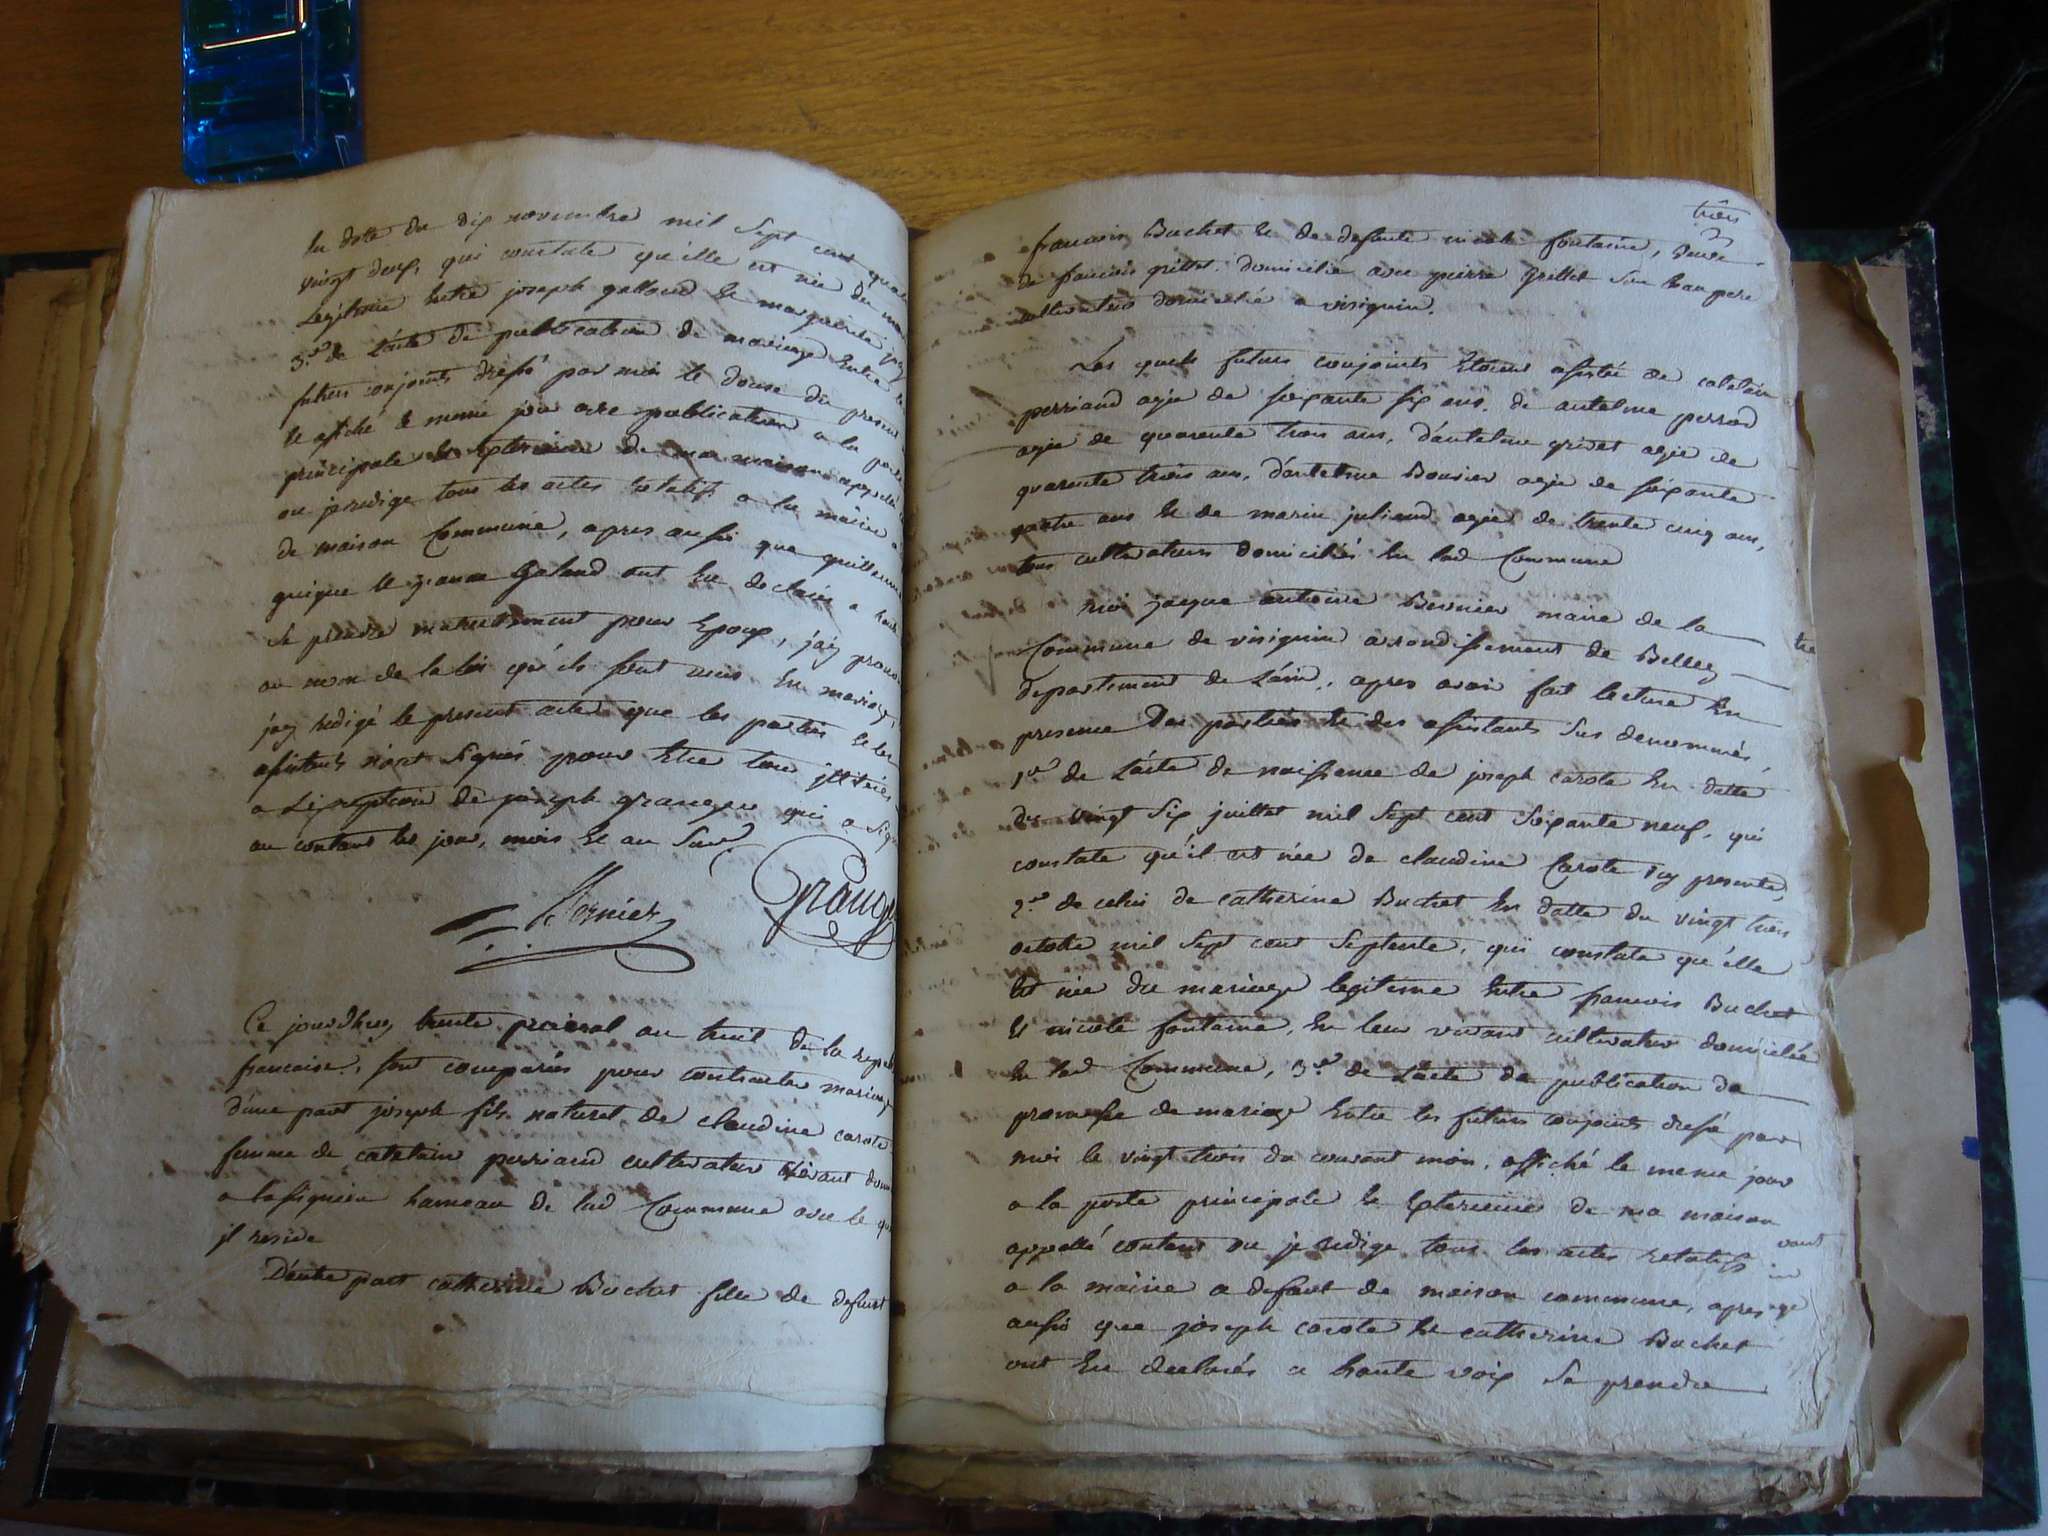 En date du dix novembre mil sept cent quatre
vingt deux, qui constate qu'elle est née du
Legitime entre joseph galloud et marguerite
3.e de L'acte de publication de mariage Entre
futurs conjoints dressé par moi le douze du present
et affiché le meme jour avec publication a la porte
principale et Exterieure de ma maison appellé
ou je redige tous les actes relatifs a la mairie a
de maison Commune, apres aussi que guillaume
guigue et Galand ont Eu declairé a haute
se prendre mutuellement pour Epoux, j'ai
au nom de la loi qu'ils sont unis En mariage,
j'ai redigé le present acte que les parties et les
assistants n'ont signés pour Etre
a L'exeption de joseph granger qui a
au contant les jour, mois et an Sus.d
Bernier
Grange
Ce jourdhuy trente prairial an huit de la
francaise, sont comparus pour contracter mariage
d'une part joseph fils naturel de claudine carote
femme de catelain perriand cultivateur
a lassignieu hameau de lad Commune avec le
jl reside
D'autre part catherine Buchet fille de defunt
trois
francois Buchet et de defunte nicole fontaine, veuve
de francois grillet domicilié avec pierre grillet son beau pere
cultivateur domicilié a virignin.
Les quels futurs conjoints Etoient assistés de catelain
perriand agé de soixante six ans, de antelme perrod
agé de quarente trois ans, d'antelme grivet agé de
quarente trois ans, d'antelme Bouvier agé de soixante
quatre ans et de marin juliand agé de trente cinq ans,
tous cultivateurs domiciliés En lad Commune
Moi jaque antoine Bernier maire de la
Commune de virignin arrondissement de Belley
departement de L'ain, apres avoir fait lecture En
presence Des parties et des assistants sus denommés,
1.er de L'acte de naissance de joseph carote En datte
du vingt six juillet mil sept cent soixante neuf, qui
constate qu'il est née de claudine Carote icy presente,
2.e de celui de catherine Buchet En datte du vingt trois
octobre mil sept cent septente, qui constate qu'elle
Est née du mariage legitime Entre francois Buchet
et nicole fontaine, En leur vivant cultivateur domiciliés
En lad Commune, 3.e de L'acte de publication de
promesse de mariage Entre les futurs conjoints dressé par
moi le vingt trois du courant mois, affiché le meme jour
a la porte principale et Exterieure de ma maison
appellé contant ou je redige tous les actes relatifs
a la mairie a defaut de maison commune, apres
aussi que joseph carote et catherine Buchet
ont Eu declarés a haute voix se prendre